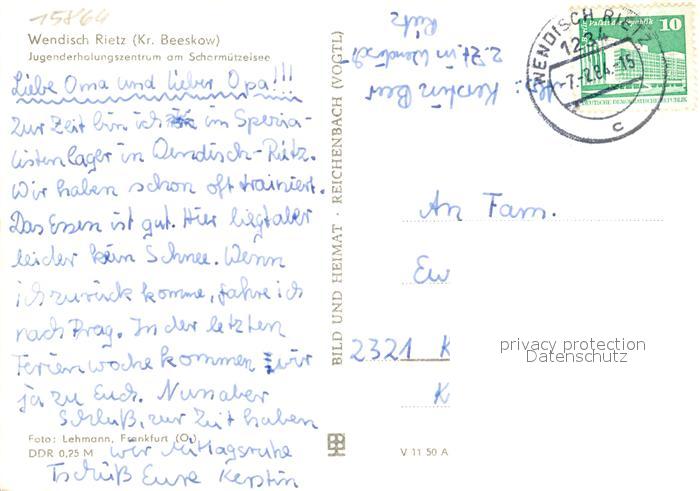 15864
Wendisch Rietz (Kr. Beeskow)
Jugenderholungszentrum am Schermützelsee
Liebe Oma und lieber Opa!!!
Zur Zeit bin ich im Spezia-
listenlager in Wendisch-Rietz.
Wir haben schon oft trainiert.
Das Essen ist gut. Hier liegt aber
leider kein Schnee. Wenn
ich zurück komme, fahre ich
nach Prag. In der letzten
Ferienwoche kommen wir
ja zu Euch. Nun aber
Schluß, zur Zeit haben
wir Mittagsruhe
Tschüß Eure Kerstin
Foto: Lehmann, Frankfurt (O.)
DDR 0,25 M
BILD UND HEIMAT · REICHENBACH (VOGTL)
V 11 50 A
Kerstin
z. Zt. in Wendisch
Rietz
WENDISCH RIETZ
1234
-7.-2.84.-16
c
Palast der Republik
10
DEUTSCHE DEMOKRATISCHE REPUBLIK
An Fam.
Ew
2321 K
K
privacy protection
Datenschutz